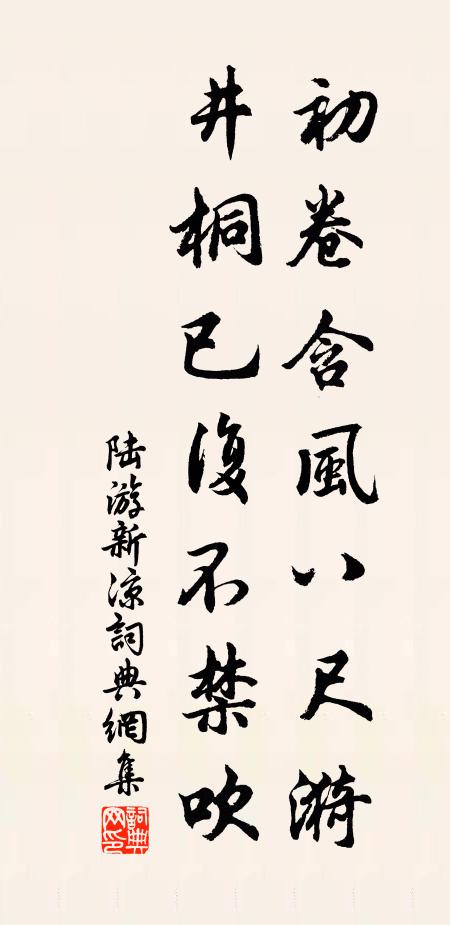 初卷含風八尺漪
井桐已復不禁吹
陸游新涼詞典網集
詞典網印